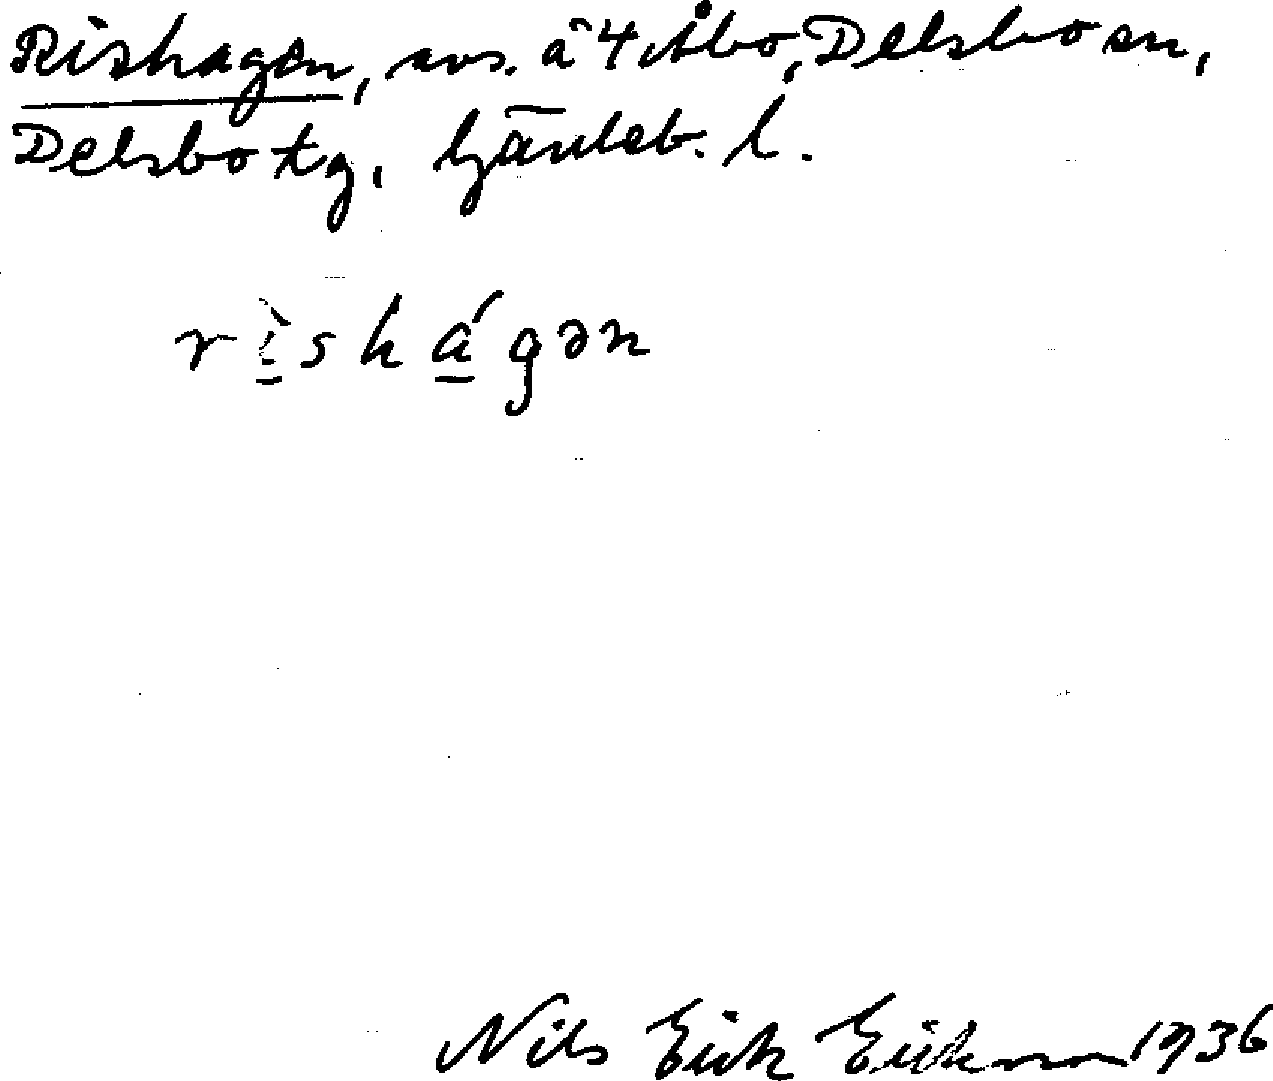 Rishagen, avs. å 4 Åbo, Delsbo sn,
Delsbo tg, Gävleb. l.
rı̀shágən
Nils Erik Erikson 1936